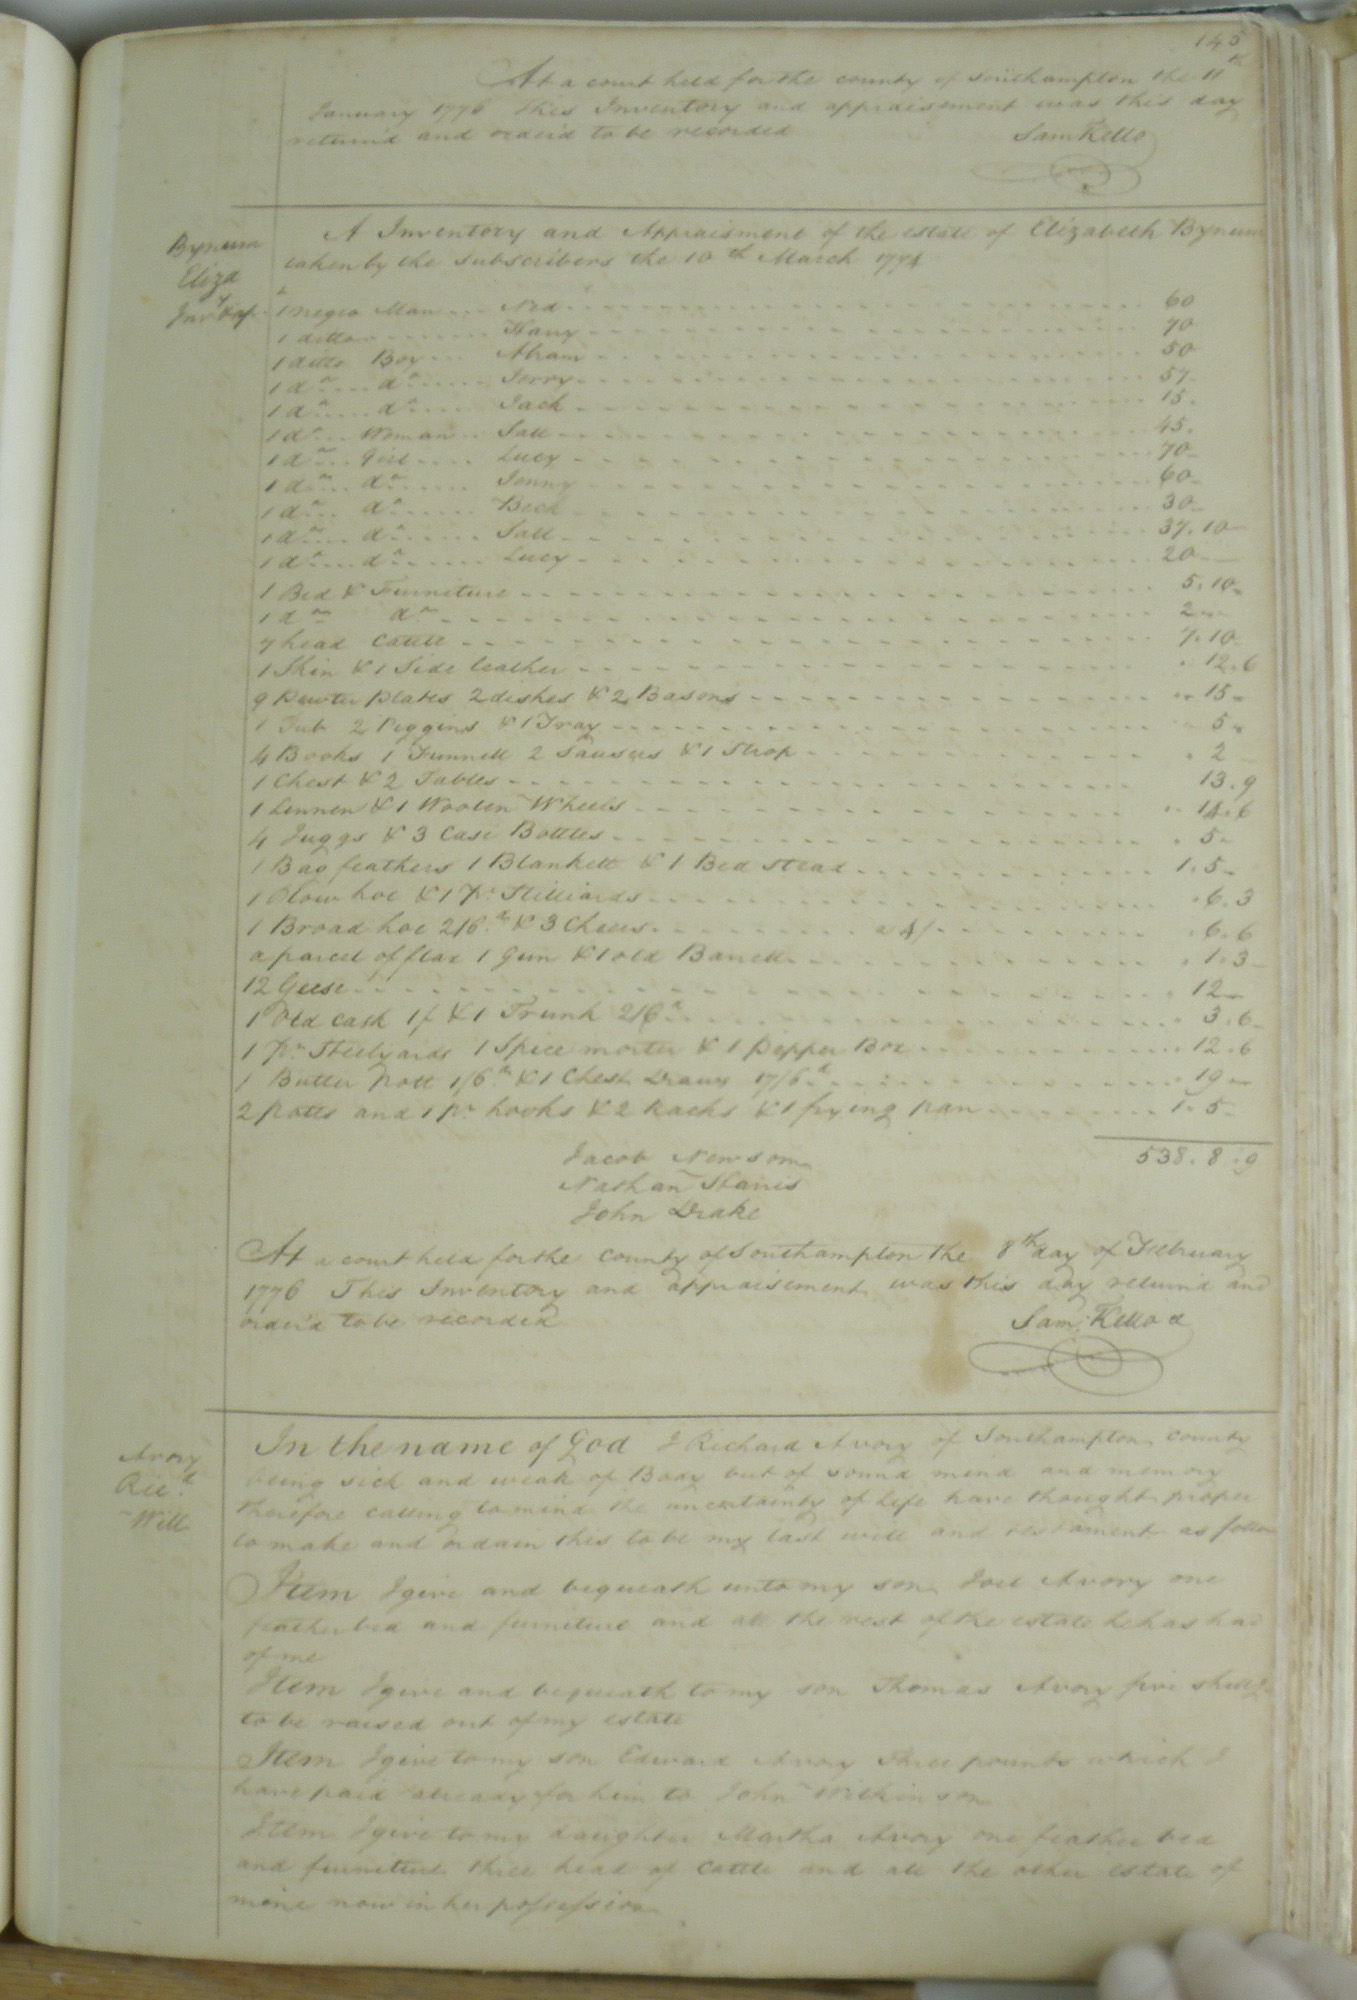 145
At a court held for the county of Southampton the 11th
January 1776 This Inventory and appraisement was this day
return'd and order'd to be recorded Sam Kello
Bynum
Eliza
Invy & ap.
A Inventory and Appraisment of the estate of Elizabeth Bynum
taken by the subscribers the 10th March 1774
1 Negro Man Ned 60
1 ditto Harry 70
1 ditto Boy Abram 50
1 do do Jerry 57
1 do do Jack 15
1 do Woman Sall 45
1 do Girl Lucy 70
1 do do Jenny 60
1 do do Beck 30
1 do do Sall 37.10
1 do do Lucy 20
1 Bed & Furniture 5.10
1 do do 2
7 head Cattle 7.10
1 Skin & 1 Side leather 12.6
9 Pewter plates 2 dishes & 2 Basons 15
1 Tub 2 Piggins & 1 Tray 5
4 Books 1 Funnell 2 Sausers & 1 Strop 2
1 Chest & 2 Tables 13.9
1 Linnen & 1 Woolen Wheels 14.6
4 Juggs & 3 Case Bottles 5
1 Bag feathers 1 Blankett & 1 Bed stead 1.5
1 Plow hoe & 1 pr Stilliards 6.3
1 Broad hoe 2/6d & 3 Chears a 4/ 6.6
a parcel of flax 1 Gun & 1 old Barrell 1.3
12 Geese 12
1 Old cask 1/ & 1 Trunk 2/6d 3.6
1 pr Steelyards 1 Spice morter & 1 pepper Box 12.6
1 Butter Pott 1/6d & 1 Chest Draws 17/6d 19
2 potts and 1 pr hooks & 2 Racks & 1 frying pan 1.5
538.8.9
Jacob Newsom
Nathan Harris
John Drake
At a court held for the county of Southampton the 8th day of February
1776 This Inventory and appraisement was this day return'd and
order'd to be recorded Sam Kello
Avory
Ricd
Will
In the name of God I Richard Avory of Southampton county
being sick and weak of Body but of sound mind and memory
therefore calling to mind the uncertainty of life have thought proper
to make and ordain this to be my last will and testament as follow
Item I give and bequeath unto my son Joel Avory one
feather bed and furniture and all the rest of the estate he has had
of me
Item I give and bequeath to my son Thomas Avory five shillgs
to be raised out of my estate
Item I give to my son Edward Avory Three pounds which I
have paid already for him to John Wilkinson
Item I give to my daughter Martha Avory one feather bed
and furniture three head of Cattle and all the other estate of
mine now in her possession